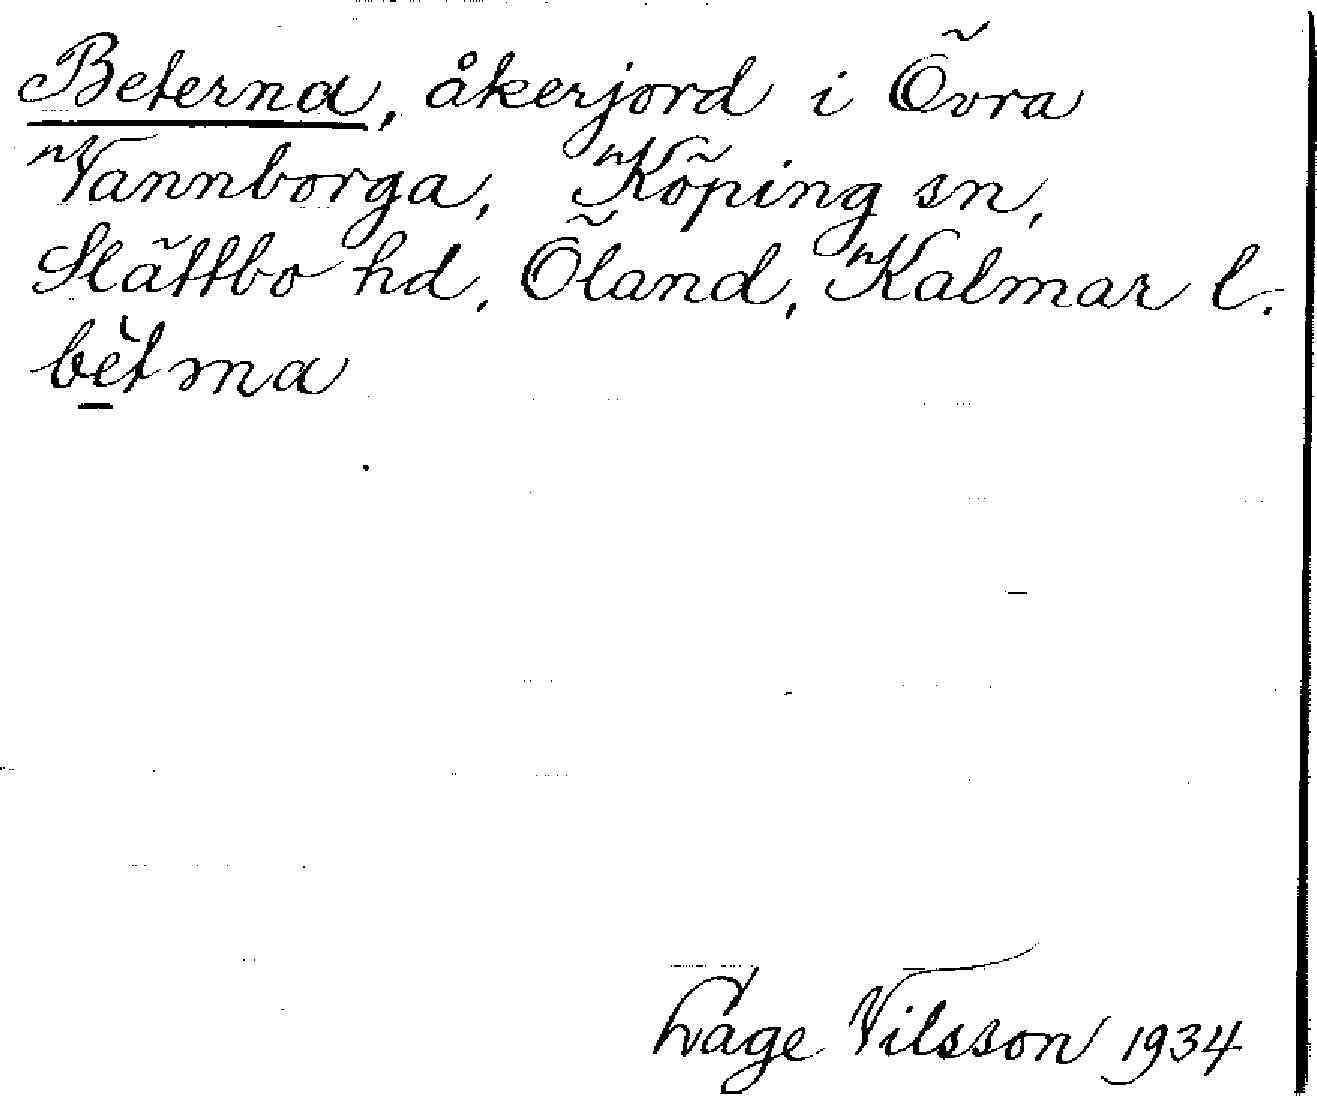 Beterna, åkerjord i Övra
Vannborga, Köping sn,
Slättbo hd, Öland, Kalmar l.
bètma
Åage Nilsson 1934